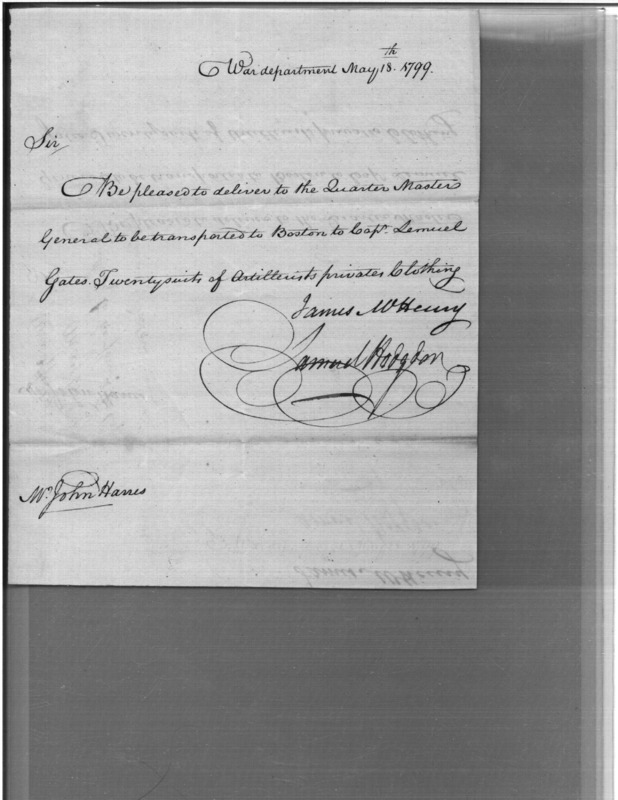 War department May 18th 1799.
Sir
Be pleased to deliver to the Quarter Master
General to be transported to Boston to Capn. Lemuel
Gates. Twenty suits of Artillerists privates Clothing
James McHenry
Samuel Hodgdon
Mr. John Harris